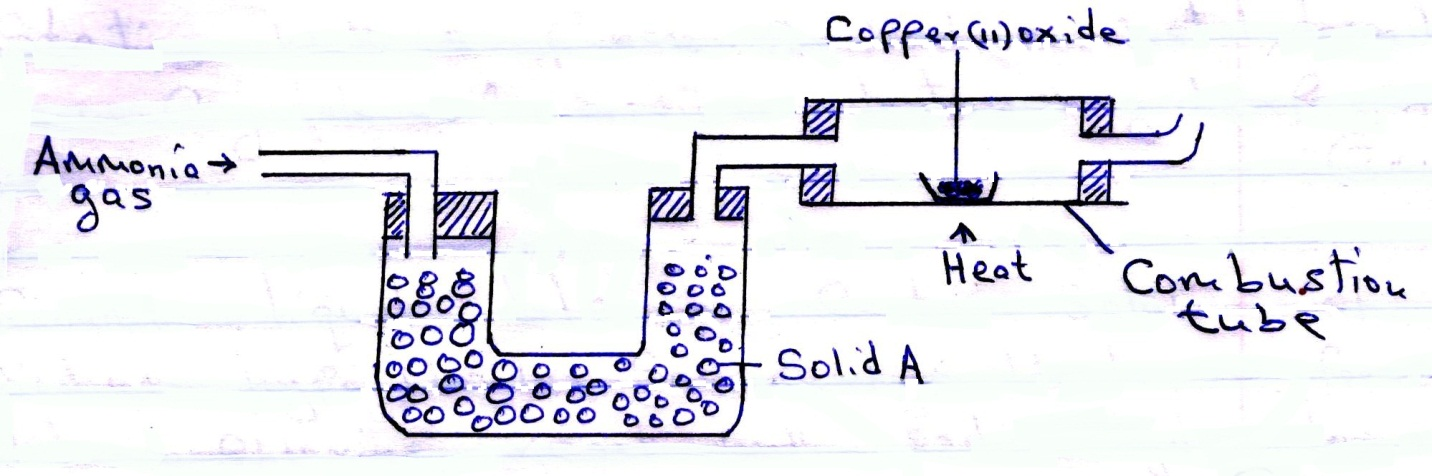 Copper(11)oxide
Ammonia →
gas
Heat
Combustion
tube
Solid A